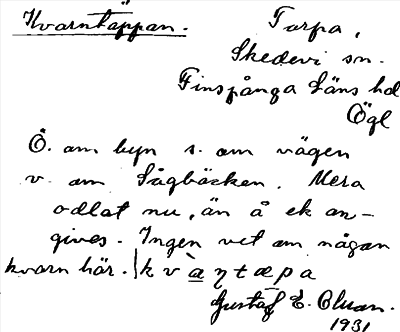 Kvarntäppan.
Tarpa,
Skedevi sn.
Finspånga läns hd
Ögl
Ö. om byn s. om vägen
v. om Sågbäcken. Mera
odlat nu, än å ek an-
gives. Ingen vet om någon
kvarn här. | k v à ŋ t æ p a
Gustaf E. Bluan.
1931